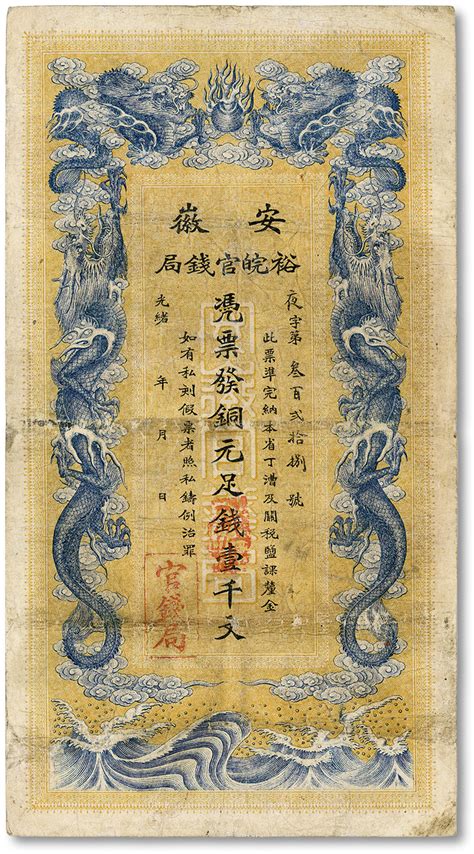 安徽
裕皖官錢局
夜字第叁百貳拾捌號
此票準完納本省丁漕及關稅鹽課釐金
憑票發銅元足錢壹千文
如有私刻假票者照私鑄例治罪
光緒 年 月 日
官錢局